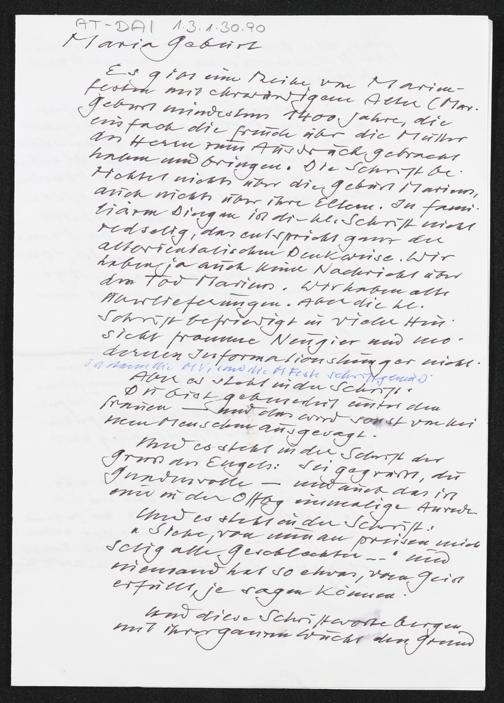 AT-DAI 1.3.1.30.90
Maria Geburt
Es gibt eine Reihe von Marien-
festen mit ehrwürdigem Alter (Mar.
Geburt mindestens 1400 Jahre, die
einfach die Freude über die Mutter
des Herrn zum Ausdruck gebracht
haben und bringen. Die Schrift be-
richtet nichts über die Geburt Mariens,
auch nichts über ihre Eltern. In fami-
liären Dingen ist die hl. Schrift nicht
redselig, das entspricht ganz der
altorientalischen Denkweise. Wir
haben ja auch keine Nachricht über
den Tod Mariens. Wir haben alte
Überlieferungen. Aber die hl.
Schrift befriedigt in vieler Hin-
sicht fromme Neugier und mo-
dernen Informationshunger nicht.
die MV und die M Feste schriftgemäß
Aber es steht in der Schrift:
Du bist gebenedeit unter den
Frauen — und das wird sonst von kei
nem Menschen ausgesagt.
Und es steht in der Schrift der
Gruß des Engels: Sei gegrüßt, du
Gnadenvolle — und auch das ist
eine in der Offbg einmalige Anrede
Und es steht in der Schrift:
"Siehe, von nun an preisen mich
selig alle Geschlechter --" und
niemand hat so etwas, vom Geist
erfüllt, je sagen können.
Und diese Schriftworte bergen
mit ihrer ganzen Wucht den Grund